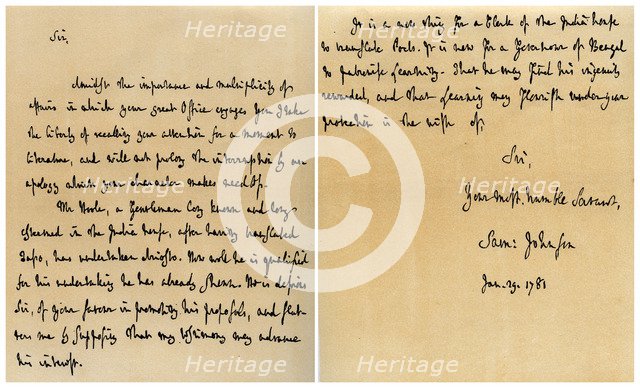 Sir,
Amidst the importance and multiplicity of
affairs in which your great Office engages you I take
the liberty of recalling your attention for a moment to
literature, and will not prolong the interruption by an
apology which your character makes needless.
Mr Hoole, a Gentleman long known and long
esteemed in the India house, after having translated
Tasso, has undertaken Ariosto. How well he is qualified
for his undertaking he has already shown. He is desirous
Sir, of your favour in promoting his proposals, and flat-
ters me by supposing that my testimony may advance
his interest.
It is a new thing for a Clerk of the India house
to translate Poets. It is new for a Governour of Bengal
to patronise learning. That he may find his ingenuity
rewarded, and that learning may flourish under your
protection is the wish of,
Sir,
Your most humble Servant,
Sam: Johnson
Jan. 29. 1781
Heritage
Heritage
Heritage
Heritage
Heritage
Heritage
C